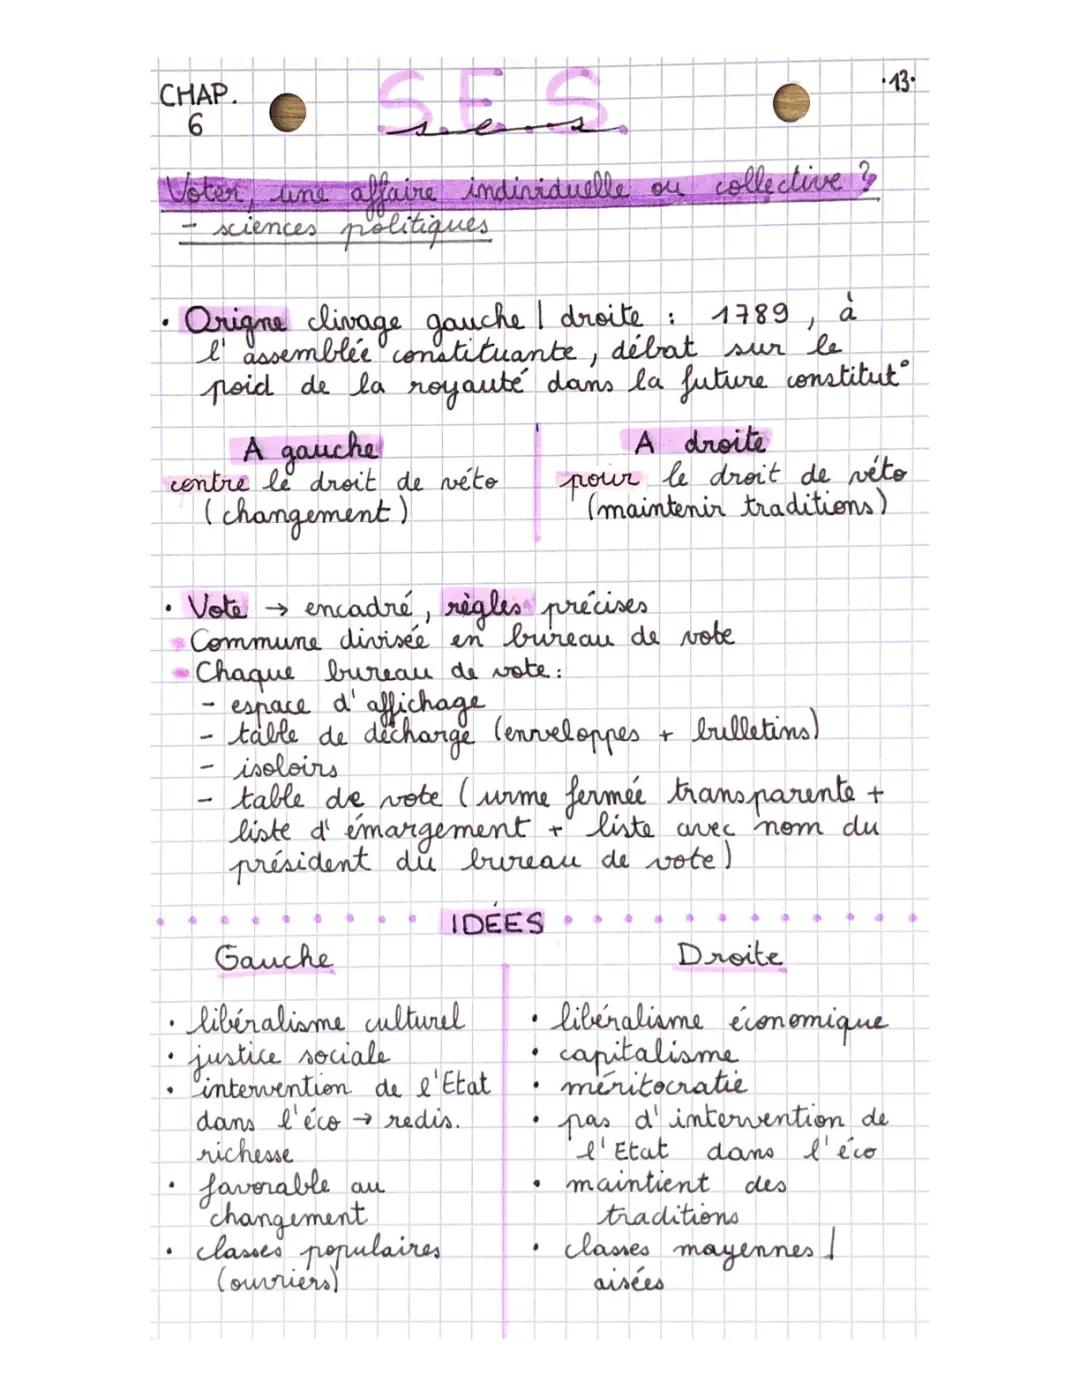 CHAP.
6
S.E.S.
s.e.s.
·13·
Voter, une affaire individuelle ou collective ?
- sciences politiques
· Origne clivage gauche | droite : 1789, à
l'assemblée constituante, débat sur le
poid de la royauté dans la future constitut°
A gauche
contre le droit de véto
(changement)
A droite
pour le droit de véto
(maintenir traditions)
· Vote → encadré, règles précises
Commune divisée en bureau de vote
Chaque bureau de vote:
- espace d'affichage
- table de décharge (enveloppes + bulletins)
- isoloirs
- table de vote (urme fermée transparente +
liste d'émargement + liste avec nom du
président du bureau de vote)
IDÉES
Gauche
· libéralisme culturel
· justice sociale
· intervention de l'Etat
dans l'éco → redis.
richesse
· favorable au
changement
· classes populaires
(ouvriers)
Droite
· libéralisme économique
· capitalisme
· méritocratie
· pas d'intervention de
l'Etat dans l'éco
· maintient des
traditions
· classes mayennes |
aisées